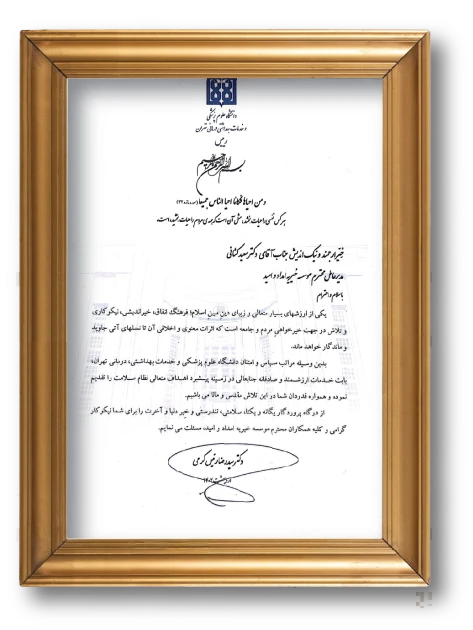 دانشگاه علوم پزشکی
و خدمات بهداشتی درمانی تهران
رئیس
بسم الله الرحمن الرحیم
و من احیاها فکانما احیا الناس جمیعا (سوره مائده ۳۲)
هر کس نفسی را حیات بخشد، مثل آن است که همه‌ی مردم را حیات بخشیده است.
خیّر ارجمند و نیک اندیش جناب آقای دکتر سعید کنانی
مدیرعامل محترم موسسه خیریه امداد و امید
با سلام و احترام
یکی از ارزشهای بسیار متعالی و زیبای دین مبین اسلام؛ فرهنگ انفاق، خیراندیشی، نیکوکاری
و تلاش در جهت خیرخواهی مردم و جامعه است که اثرات معنوی و اخلاقی آن تا نسلهای آتی جاوید
و ماندگار خواهد ماند.
بدین وسیله مراتب سپاس و امتنان دانشگاه علوم پزشکی و خدمات بهداشتی، درمانی تهران،
بابت خدمات ارزشمند و صادقانه جنابعالی در زمینه پیشبرد اهداف متعالی نظام سلامت را تقدیم
نموده و همواره قدردان شما در این تلاش مقدس و والا می باشیم.
از درگاه پروردگار یگانه و یکتا، سلامتی، تندرستی و خیر دنیا و آخرت را برای شما نیکوکار
گرامی و کلیه همکاران محترم موسسه خیریه امداد و امید، مسئلت می نمایم.
دکتر سید رضا رئیس کرمی
اردیبهشت ۱۴۰۳